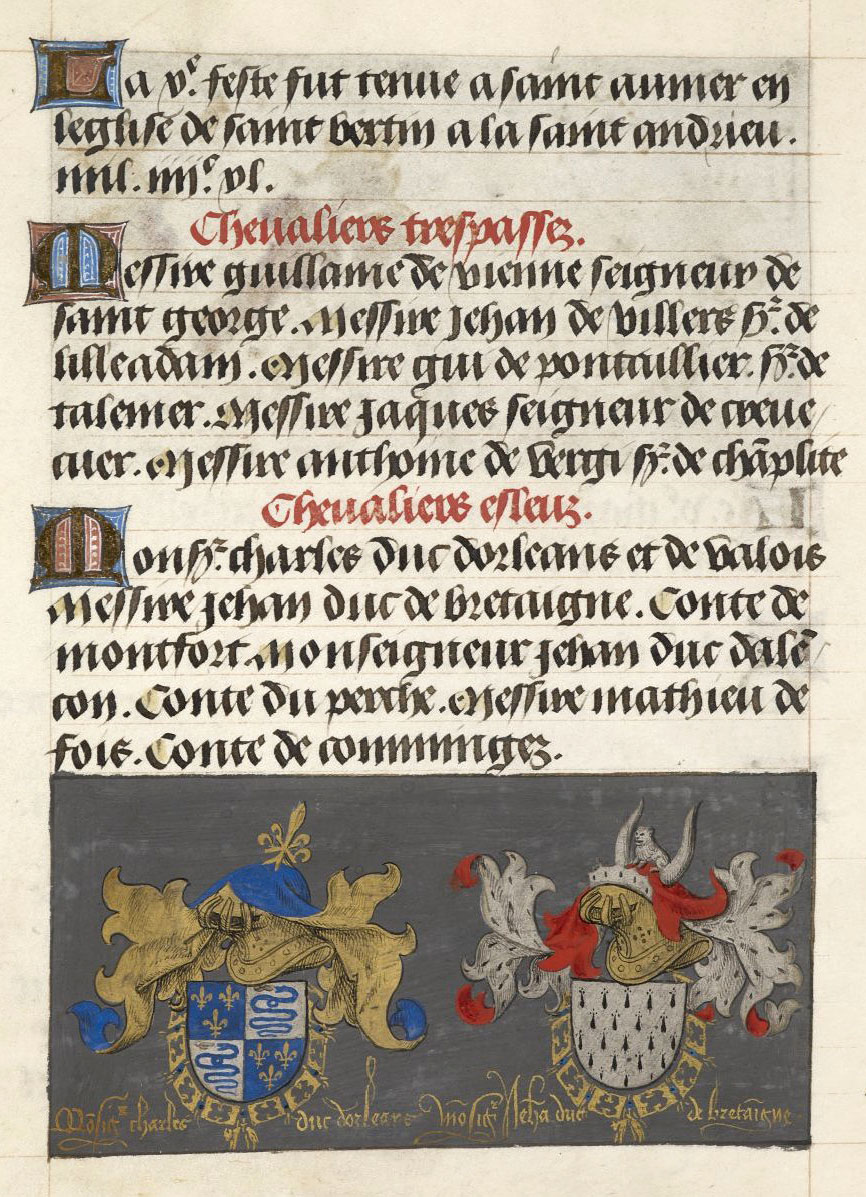 La ve. feste fut tenue a saint aumer en
leglise de saint bertin a la saint andrieu.
mil. iiiic. xl.
Chevaliers trespassez.
Messire guillame de vienne seigneur de
saint george. Messire Jehan de villers sr. de
lilleadam. Messire gui de pontaillier. sr. de
talemer. Messire Jaques seigneur de creue
cuer. Messire anthoine de vergi sr. de chāplite
Chevaliers esleuz.
Monsr. charles duc dorleans et de valois
Messire Jehan duc de bretaigne. Conte de
montfort. Monseigneur Jehan duc dalē
con. Conte du perche. Messire mathieu de
fois. Conte de comminges.
Mōsigr charles duc dorleans mōsigr Jehā duc de bretaīgne